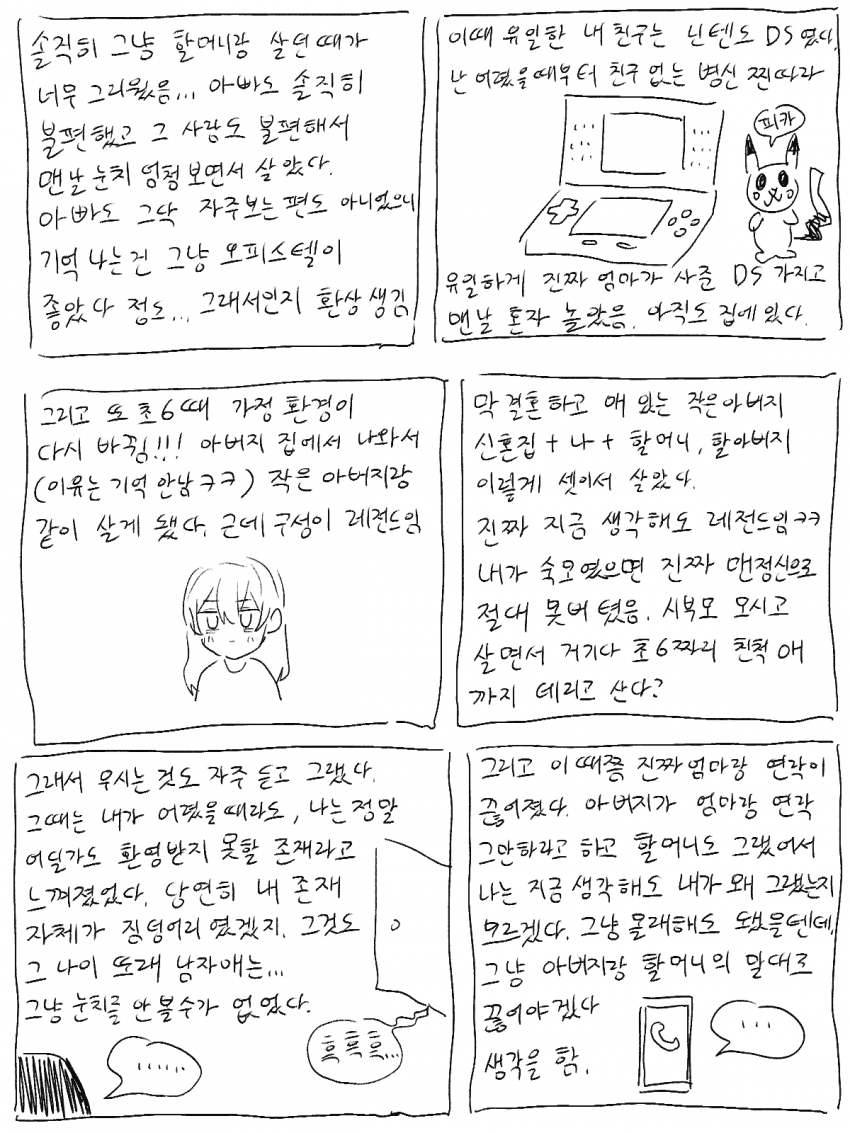 솔직히 그냥 할머니랑 살던때가
너무 그리웠음... 아빠도 솔직히
불편했고 그 사람도 불편해서
맨날 눈치 엄청보면서 살았다.
아빠도 그닥 자주보는 편도 아니었으니
기억 나는건 그냥 오피스텔이
좋았다 정도... 그래서인지 환상생김
이때 유일한 내 친구는 닌텐도 DS였다.
난 어렸을때부터 친구 없는 병신 찐따라
피카
유일하게 진짜 엄마가 사준 DS 가지고
맨날 혼자 놀았음. 아직도 집에있다.
그리고 또 초6때 가정 환경이
다시 바뀜!!! 아버지 집에서 나와서
(이유는 기억 안남ㅋㅋ) 작은 아버지랑
같이 살게 됐다. 근데 구성이 레전드임
막 결혼하고 애 있는 작은아버지
신혼집 + 나 + 할머니, 할아버지
이렇게 셋이서 살았다.
진짜 지금 생각해도 레전드임ㅋㅋ
내가 숙모였으면 진짜 맨정신으로
절대 못버텼음. 시부모 모시고
살면서 거기다 초6짜리 친척 애
까지 데리고 산다?
그래서 우시는 것도 자주 듣고 그랬다.
그때는 내가 어렸을때라도, 나는 정말
어딜가도 환영받지 못할 존재라고
느껴졌었다. 당연히 내 존재
자체가 짐덩어리 였겠지. 그것도
그 나이 또래 남자애는...
그냥 눈치를 안볼수가 없었다.
흑흑흑...
.....
그리고 이때쯤 진짜엄마랑 연락이
끊어졌다. 아버지가 엄마랑 연락
그만하라고 하고 할머니도 그랬어서
나는 지금 생각해도 내가 왜 그랬는지
모르겠다. 그냥 몰래해도 됐을텐데,
그냥 아버지랑 할머니의 말대로
끊어야겠다
생각을 함.
...